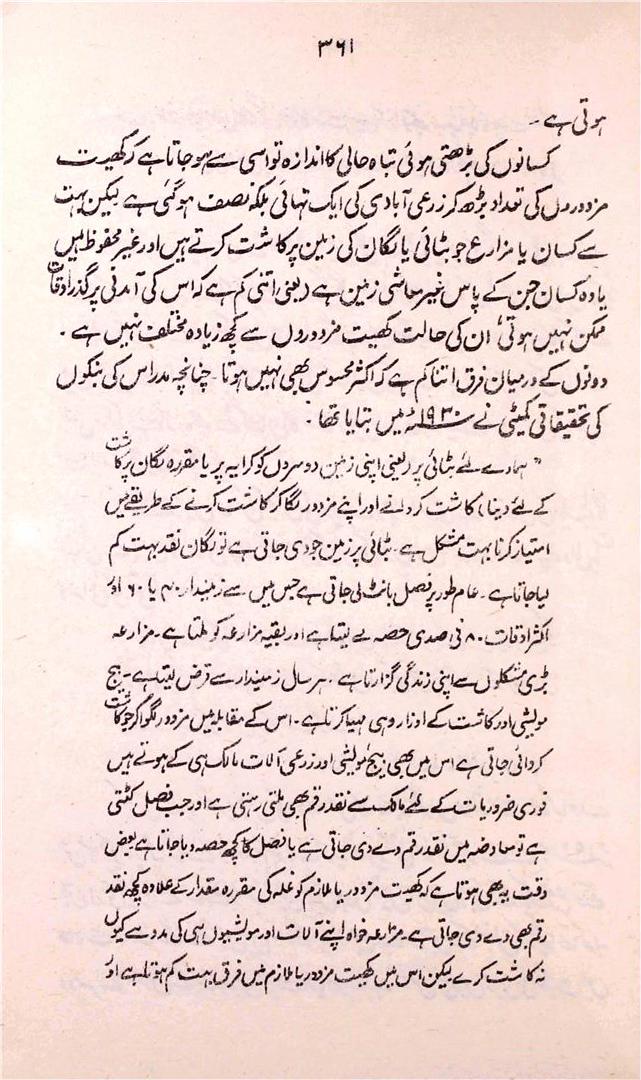 ۳۶۱
ہوتی ہے۔
کسانوں کی بڑھتی ہوئی تباہ حالی کا اندازہ تو اسی سے ہو جاتا ہے کہ کھیت
مزدوروں کی تعداد بڑھ کر زرعی آبادی کی ایک تہائی بلکہ نصف ہو گئی ہے لیکن بہت
سے کسان یا مزارع جو بٹائی یا لگان کی زمین پر کاشت کرتے ہیں اور غیر محفوظ ہیں
یا وہ کسان جن کے پاس غیر معاشی زمین ہے (یعنی اتنی کم ہے کہ اس کی آمدنی پر گذر اوقات
ممکن نہیں ہوتی) ان کی حالت کھیت مزدوروں سے کچھ زیادہ مختلف نہیں ہے۔
دونوں کے درمیان فرق اتنا کم ہے کہ اکثر محسوس بھی نہیں ہوتا۔ چنانچہ مدراس کی بنکوں
کی تحقیقاتی کمیٹی نے ۱۹۳۰ء میں بتایا تھا۔
"ہمارے لئے بٹائی پر (یعنی اپنی زمین دوسروں کو کرایہ پر یا مقررہ لگان پر کاشت
کے لئے دینا) کاشت کروانے اور اپنے مزدور لگا کر کاشت کرنے کے طریقے میں
امتیاز کرنا بہت مشکل ہے۔ بٹائی پر زمین جو دی جاتی ہے تو لگان نقد بہت کم
لیا جاتا ہے۔ عام طور پر فصل بانٹ لی جاتی ہے جس میں سے زمیندار ۴۰ یا ۶۰ اور
اکثر اوقات ۸۰ فی صدی حصہ لے لیتا ہے اور بقیہ مزارعہ کو ملتا ہے۔ مزارعہ
بڑی مشکلوں سے اپنی زندگی گزارتا ہے۔ ہر سال زمیندار سے قرض لیتا ہے۔ بیج
مویشی اور کاشت کے اوزار وہی مہیا کرتا ہے۔ اس کے مقابلہ میں مزدور لگوا کر جو کاشت
کروائی جاتی ہے اس میں بھی بیج مویشی اور زرعی آلات مالک ہی کے ہوتے ہیں
فوری ضروریات کے لئے مالک سے نقد رقم بھی ملتی رہتی ہے اور جب فصل کٹتی
ہے تو معاوضہ میں نقد رقم دے دی جاتی ہے یا فصل کا کچھ حصہ دیا جاتا ہے بعض
وقت یہ بھی ہوتا ہے کہ کھیت مزدور یا ملازم کو غلہ کی مقررہ مقدار کے علاوہ کچھ نقد
رقم بھی دے دی جاتی ہے۔ مزارعہ خواہ اپنے آلات اور مویشیوں ہی کی مدد سے کیوں
نہ کاشت کرے لیکن اس میں کھیت مزدور یا ملازم میں فرق بہت کم ہوتا ہے اور